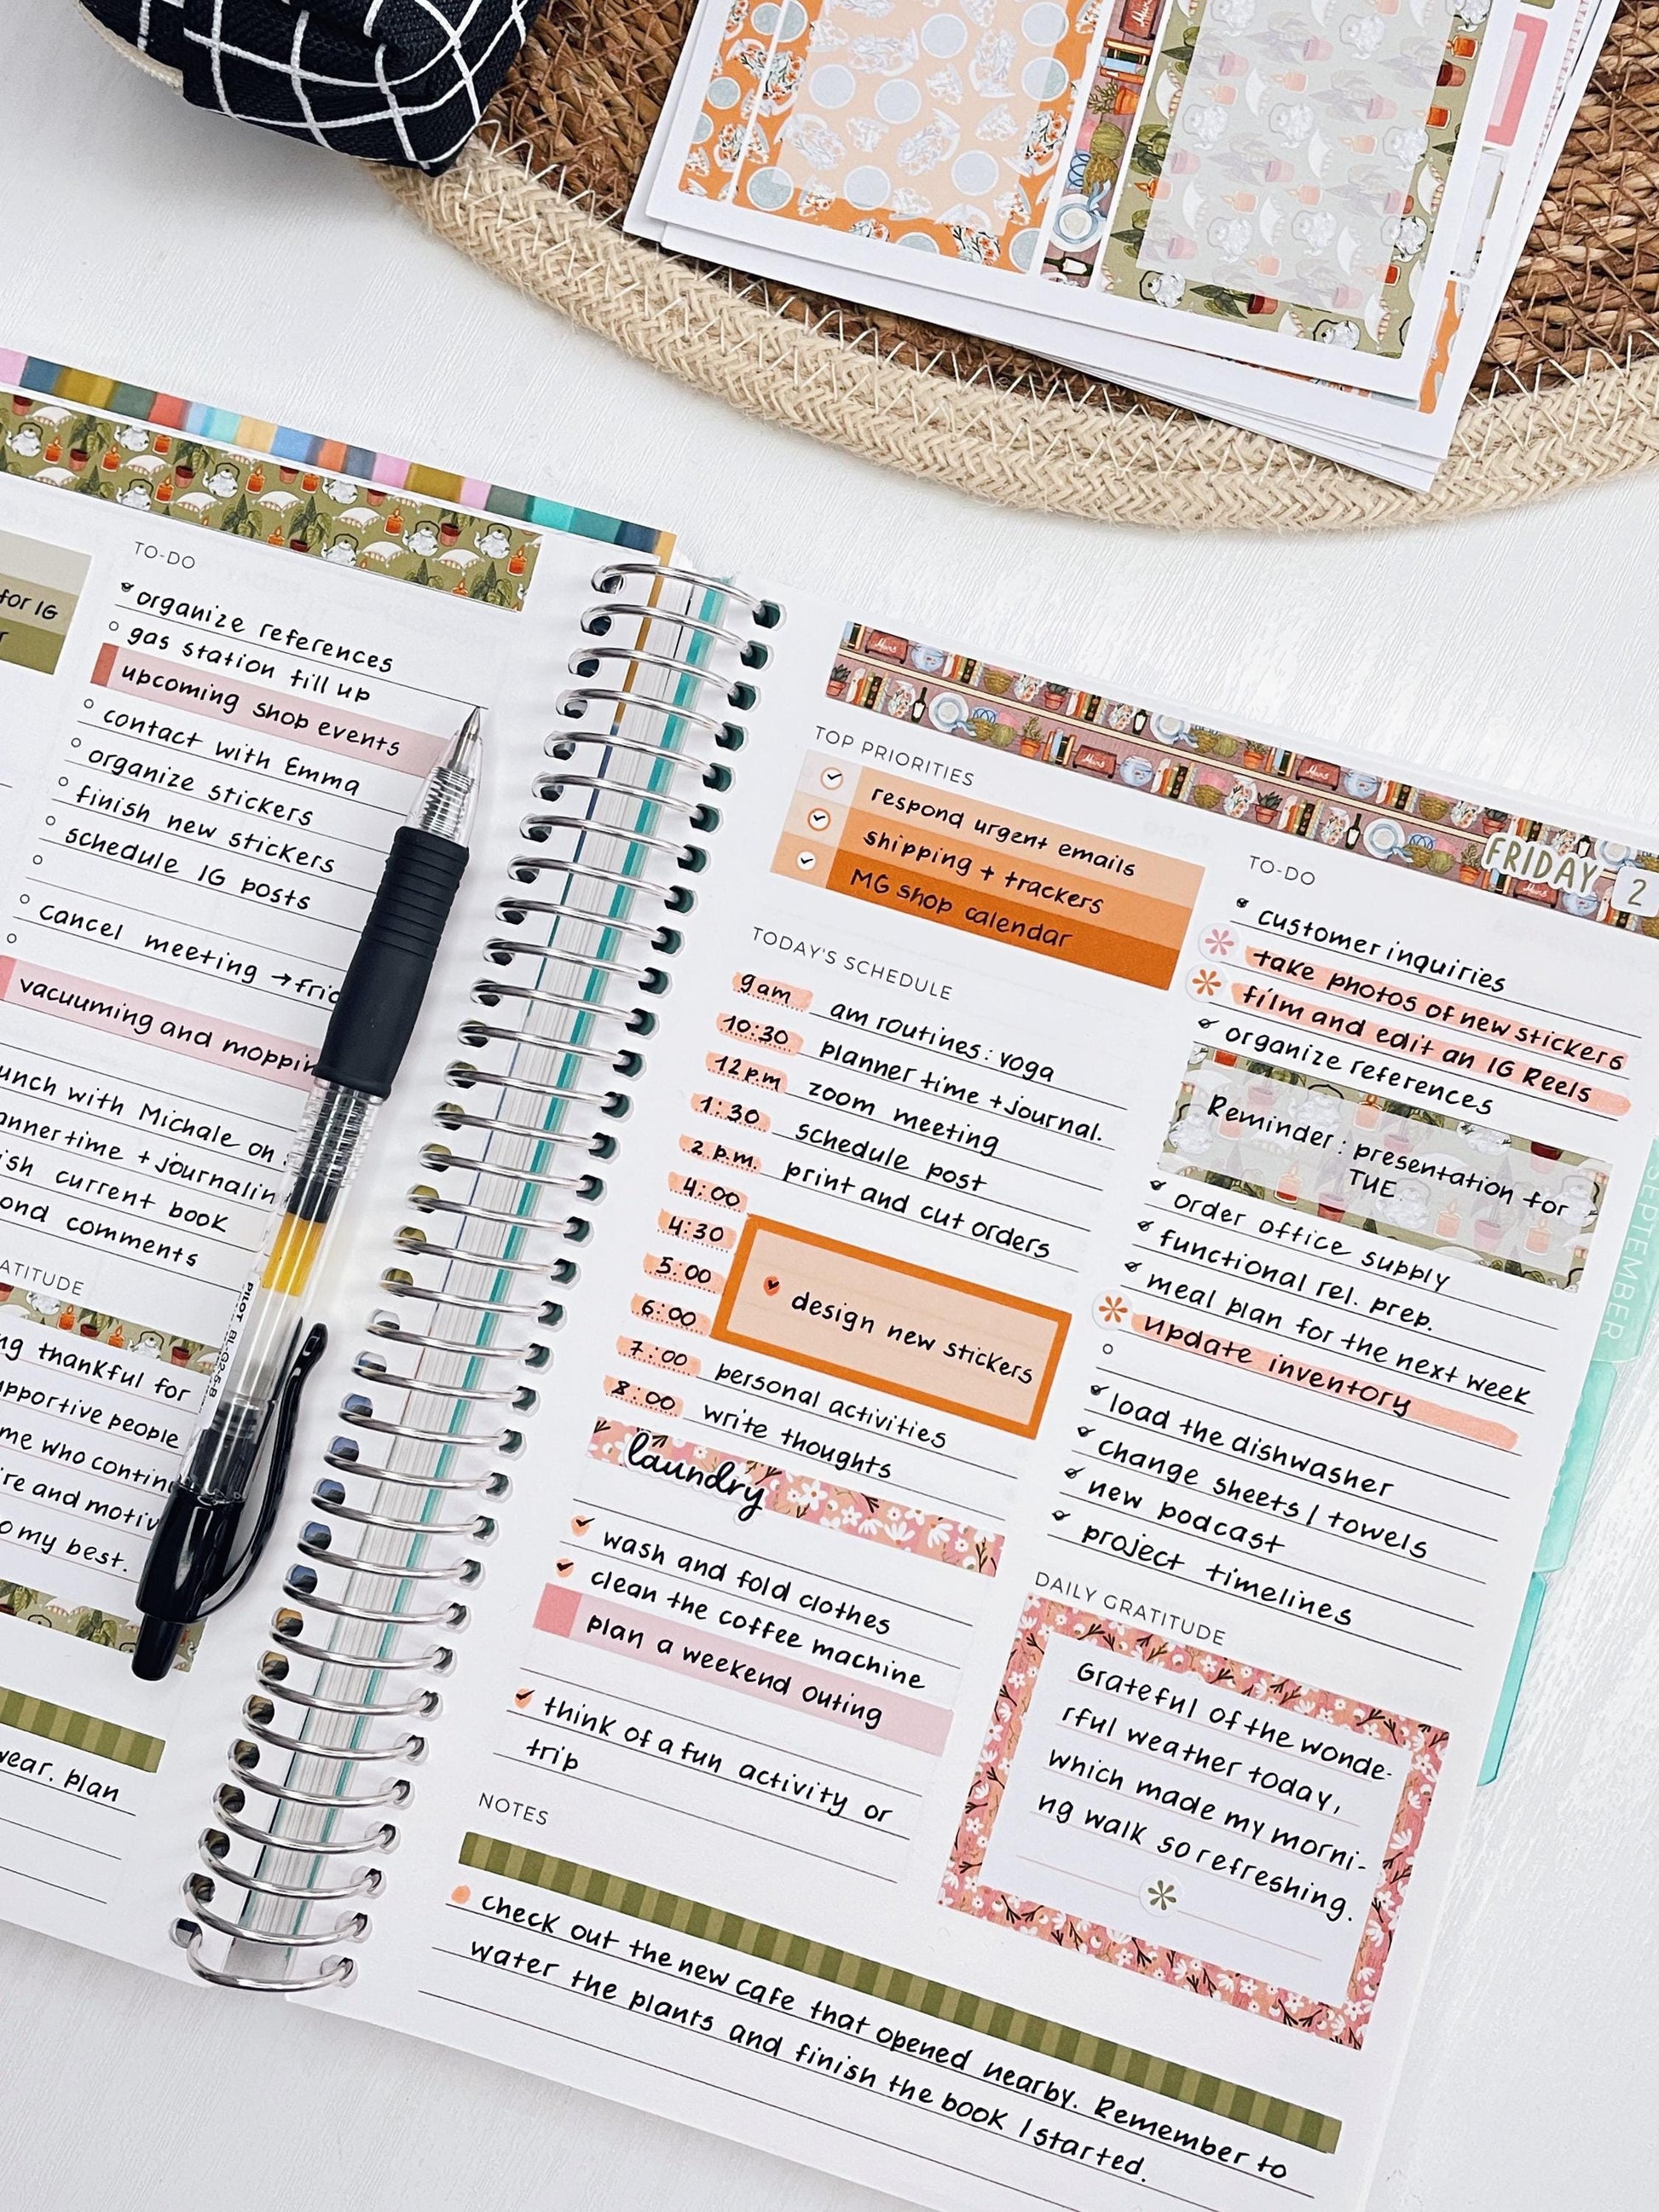 for IG
TO-DO
organize references
gas station fill up
upcoming shop events
contact with Emma
organize stickers
finish new stickers
schedule IG posts
cancel meeting → fri
vacuuming and moppin
unch with Michale on
anner time + journalin
ish current book
ond comments
ATITUDE
ng thankful for
pportive people
me who contin
re and motiv
o my best.
wear. plan
PILOT BL-G2-5-B
TOP PRIORITIES
respond urgent emails
shipping + trackers
MG shop calendar
TODAY'S SCHEDULE
9am am routines: yoga
10:30 planner time + journal.
12pm zoom meeting
1:30 schedule post
2 p.m. print and cut orders
4:00
4:30
5:00 design new stickers
6:00
7:00 personal activities
8:00 write thoughts
laundry
wash and fold clothes
clean the coffee machine
plan a weekend outing
think of a fun activity or
trip
FRIDAY 2
TO-DO
customer inquiries
take photos of new stickers
film and edit an IG Reels
organize references
Reminder: presentation for
TUE
order office supply
functional rel. prep.
meal plan for the next week
update inventory
load the dishwasher
change sheets / towels
new podcast
project timelines
DAILY GRATITUDE
Grateful of the wonde-
rful weather today,
which made my morni-
ng walk so refreshing.
NOTES
check out the new cafe that opened nearby. Remember to
water the plants and finish the book I started.
SEPTEMBER